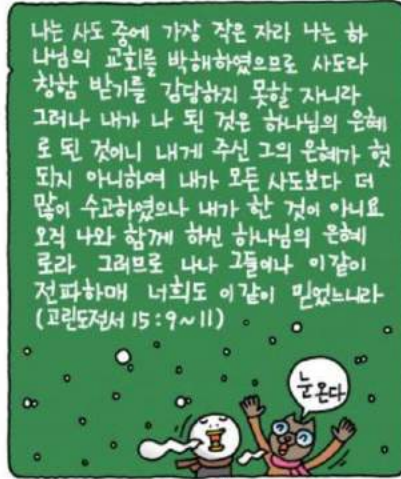 나는 사도 중에 가장 작은 자라 나는 하
나님의 교회를 박해하였으므로 사도라
칭함 받기를 감당하지 못할 자니라
그러나 내가 나 된 것은 하나님의 은혜
로 된 것이니 내게 주신 그의 은혜가 헛
되지 아니하여 내가 모든 사도보다 더
많이 수고하였으나 내가 한 것이 아니요
오직 나와 함께 하신 하나님의 은혜
로라 그러므로 나나 그들이나 이같이
전파하매 너희도 이같이 믿었느니라
(고린도전서 15:9~11)
눈 온다